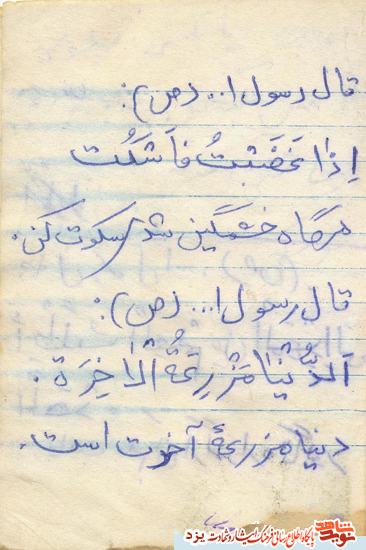 قال رسول ا... (ص):
اِذٰا غَضَبْتُ فَاَسْکُت
هرگاه خشمگین شدی سکوت کن.
قال رسول ا... (ص):
اَلدُّنْیٰا مَزْرِعَةُ الْاٰخِرَة.
دنیا مزرعهٔ آخرت است.
نوید شاهد
پایگاه اطلاع رسانی فرهنگ ایثار و شهادت یزد